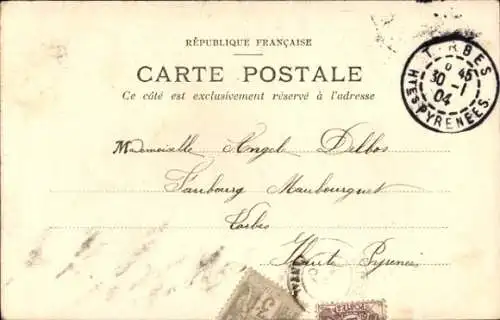 RÉPUBLIQUE FRANÇAISE
CARTE POSTALE
Ce côté est exclusivement réservé à l'adresse
TARBES
45
30 -1
04
HTES PYRÉNÉES
Mademoiselle Angele Delbos
Faubourg Maubourguet
Tarbes
Haute Pyrenees
POSTES